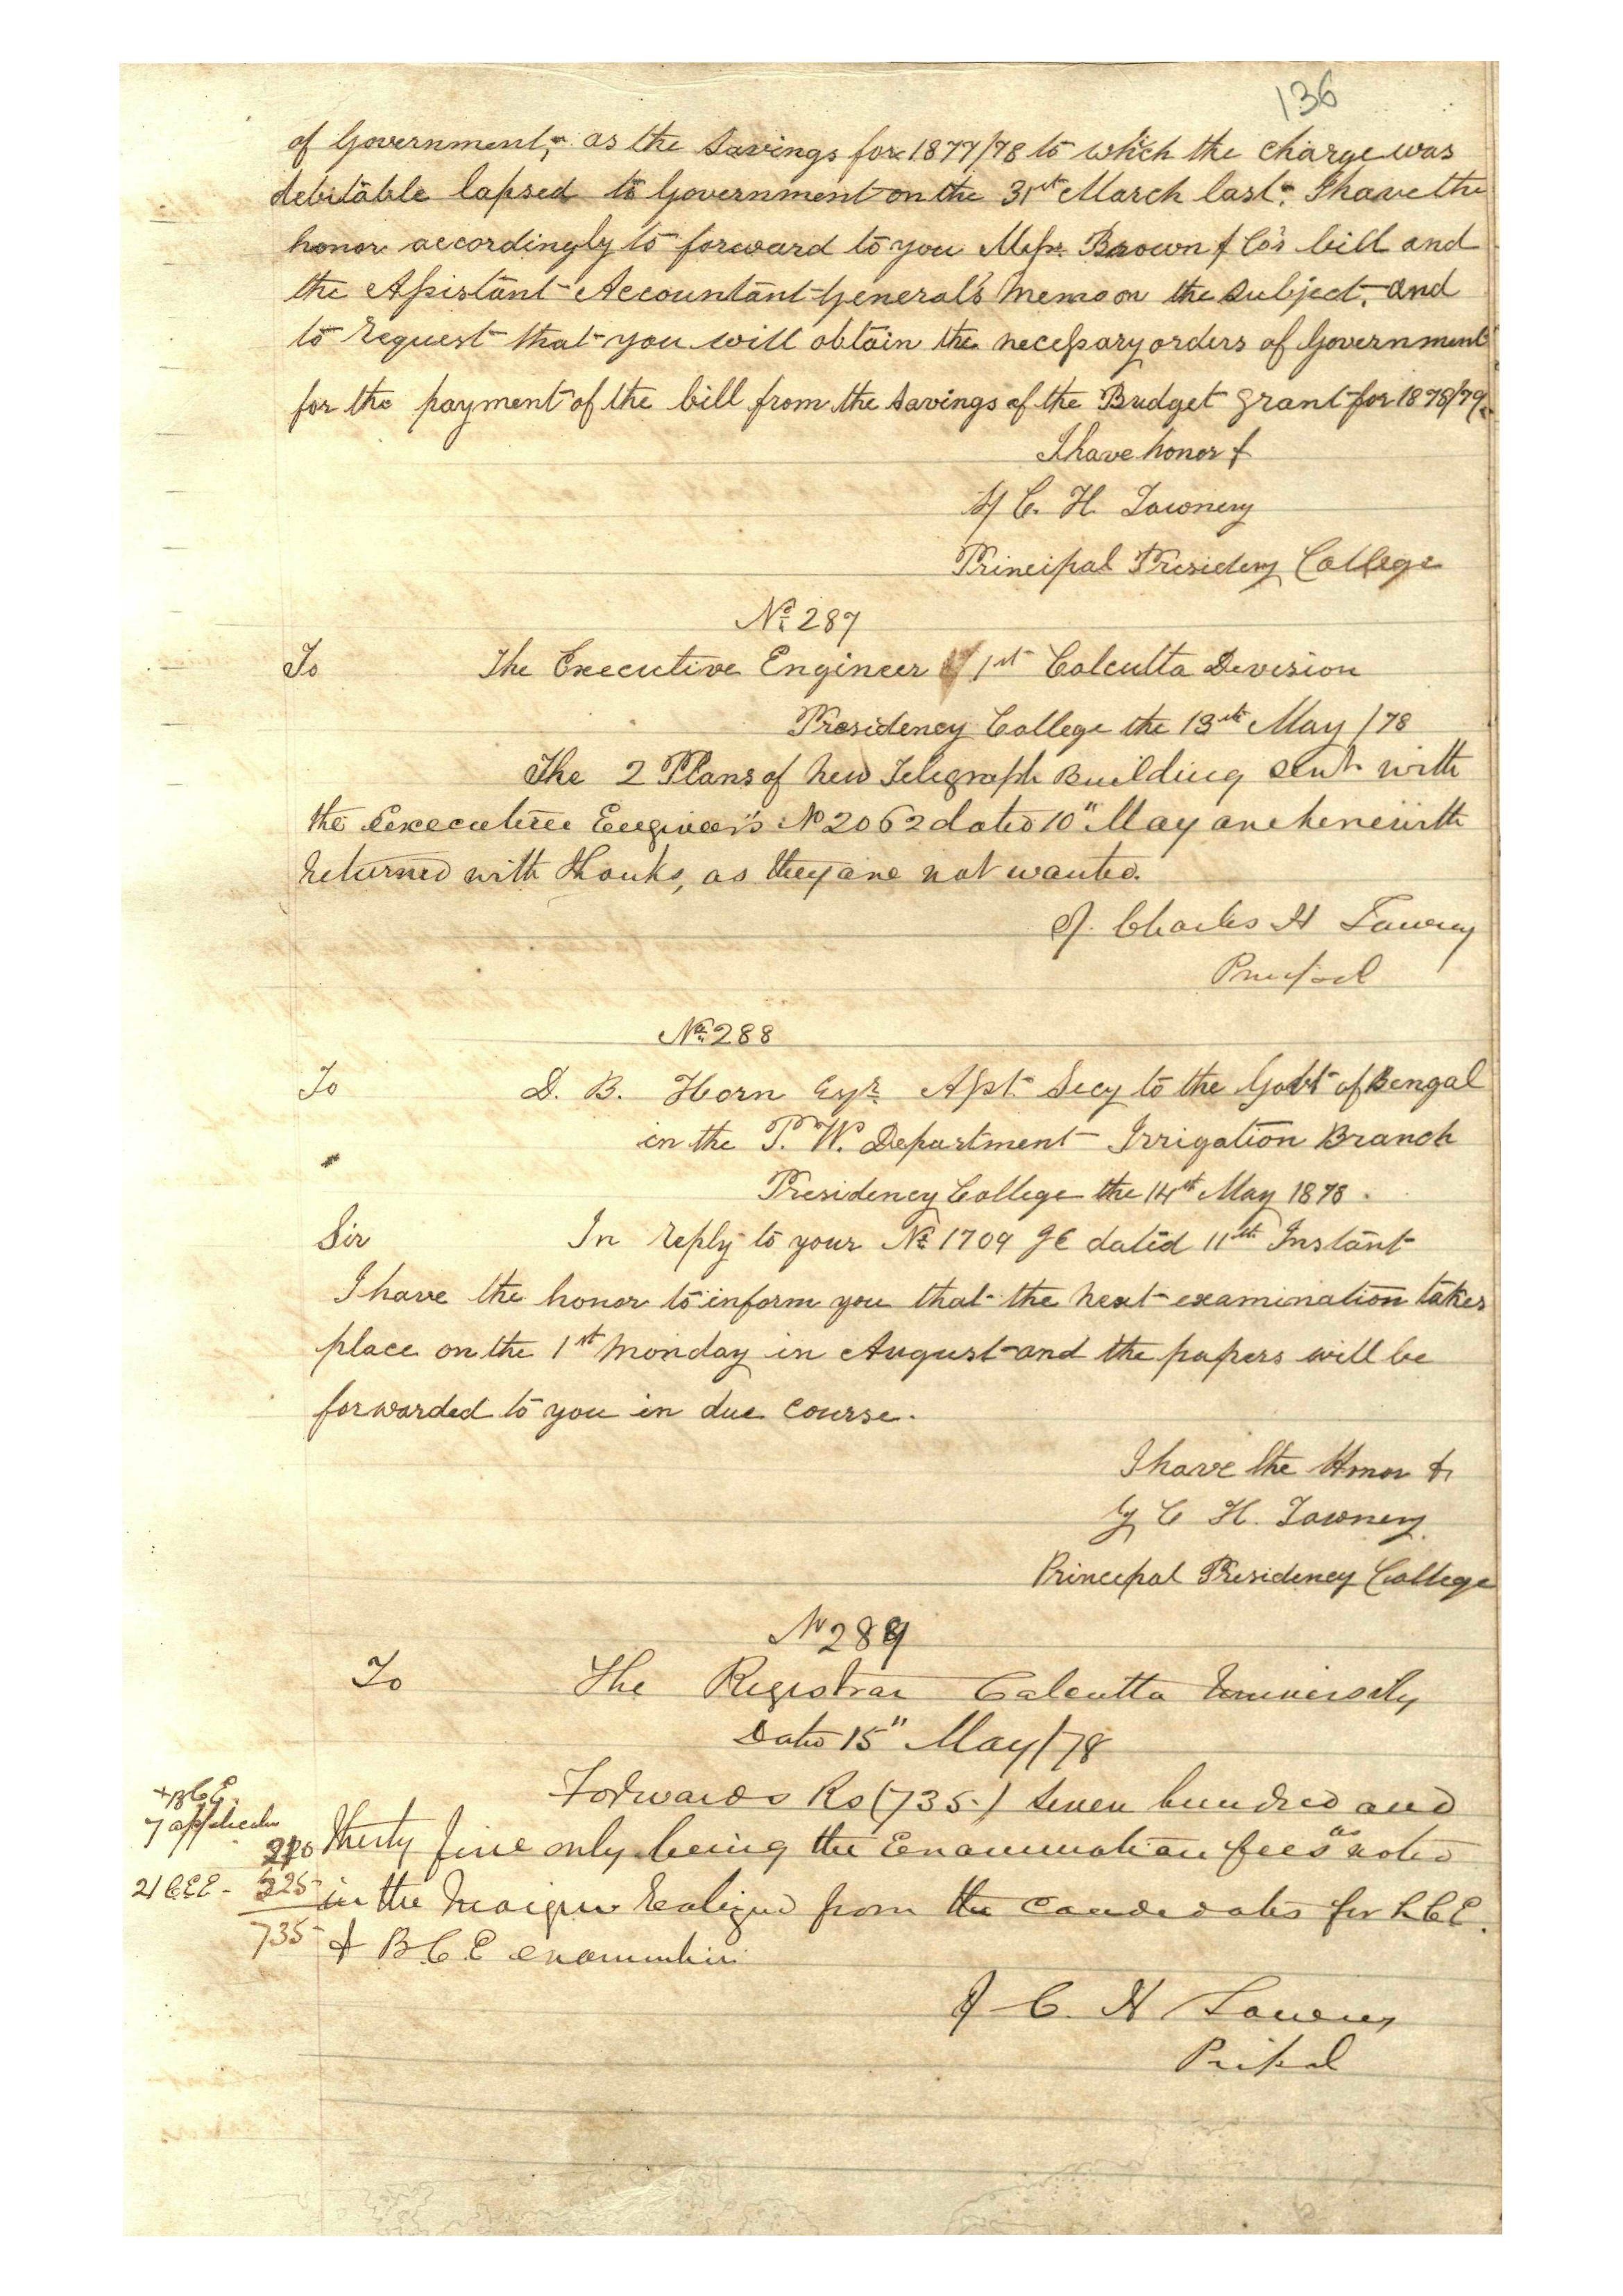 136
of Government, as the Savings for 1877/78 to which the charge was
debitable lapsed to Government on the 31st March last. I have the
honor accordingly to forward to you Messrs. Brown & Co's bill and
the Assistant Accountant General's memo on the subject, and
to request that you will obtain the necessary orders of Government
for the payment of the bill from the Savings of the Budget grant for 1878/79.
I have honor &
Sd C. H. Tawney
Principal Presidency College
No. 287
To The Executive Engineer 1st Calcutta Division
Presidency College the 13th May /78
The 2 Plans of New Telegraph Building sent with
the Executive Engineer's No 2062 dated 10" May are herewith
returned with thanks, as they are not wanted.
Sd. Charles H Tawney
Principal
No. 288
To D. B. Horn Esqr. Asst. Secy to the Govt of Bengal
in the P. W. Department Irrigation Branch
Presidency College the 14th May 1878.
Sir In reply to your No. 1709 dated 11th Instant
I have the honor to inform you that the next examination takes
place on the 1st Monday in August and the papers will be
forwarded to you in due course.
I have the Honor &
Sd C H. Tawney
Principal Presidency College
No 289
To The Registrar Calcutta University
Dated 15" May/78
Forwards Rs (735.) Seven hundred and
thirty five only being the Examination fees as noted
in the margin realized from the candidates for L.C.E.
& B.C.E examination
BCE
7
210
21 LCE - 525
735
Sd C. H Tawney
Pripal